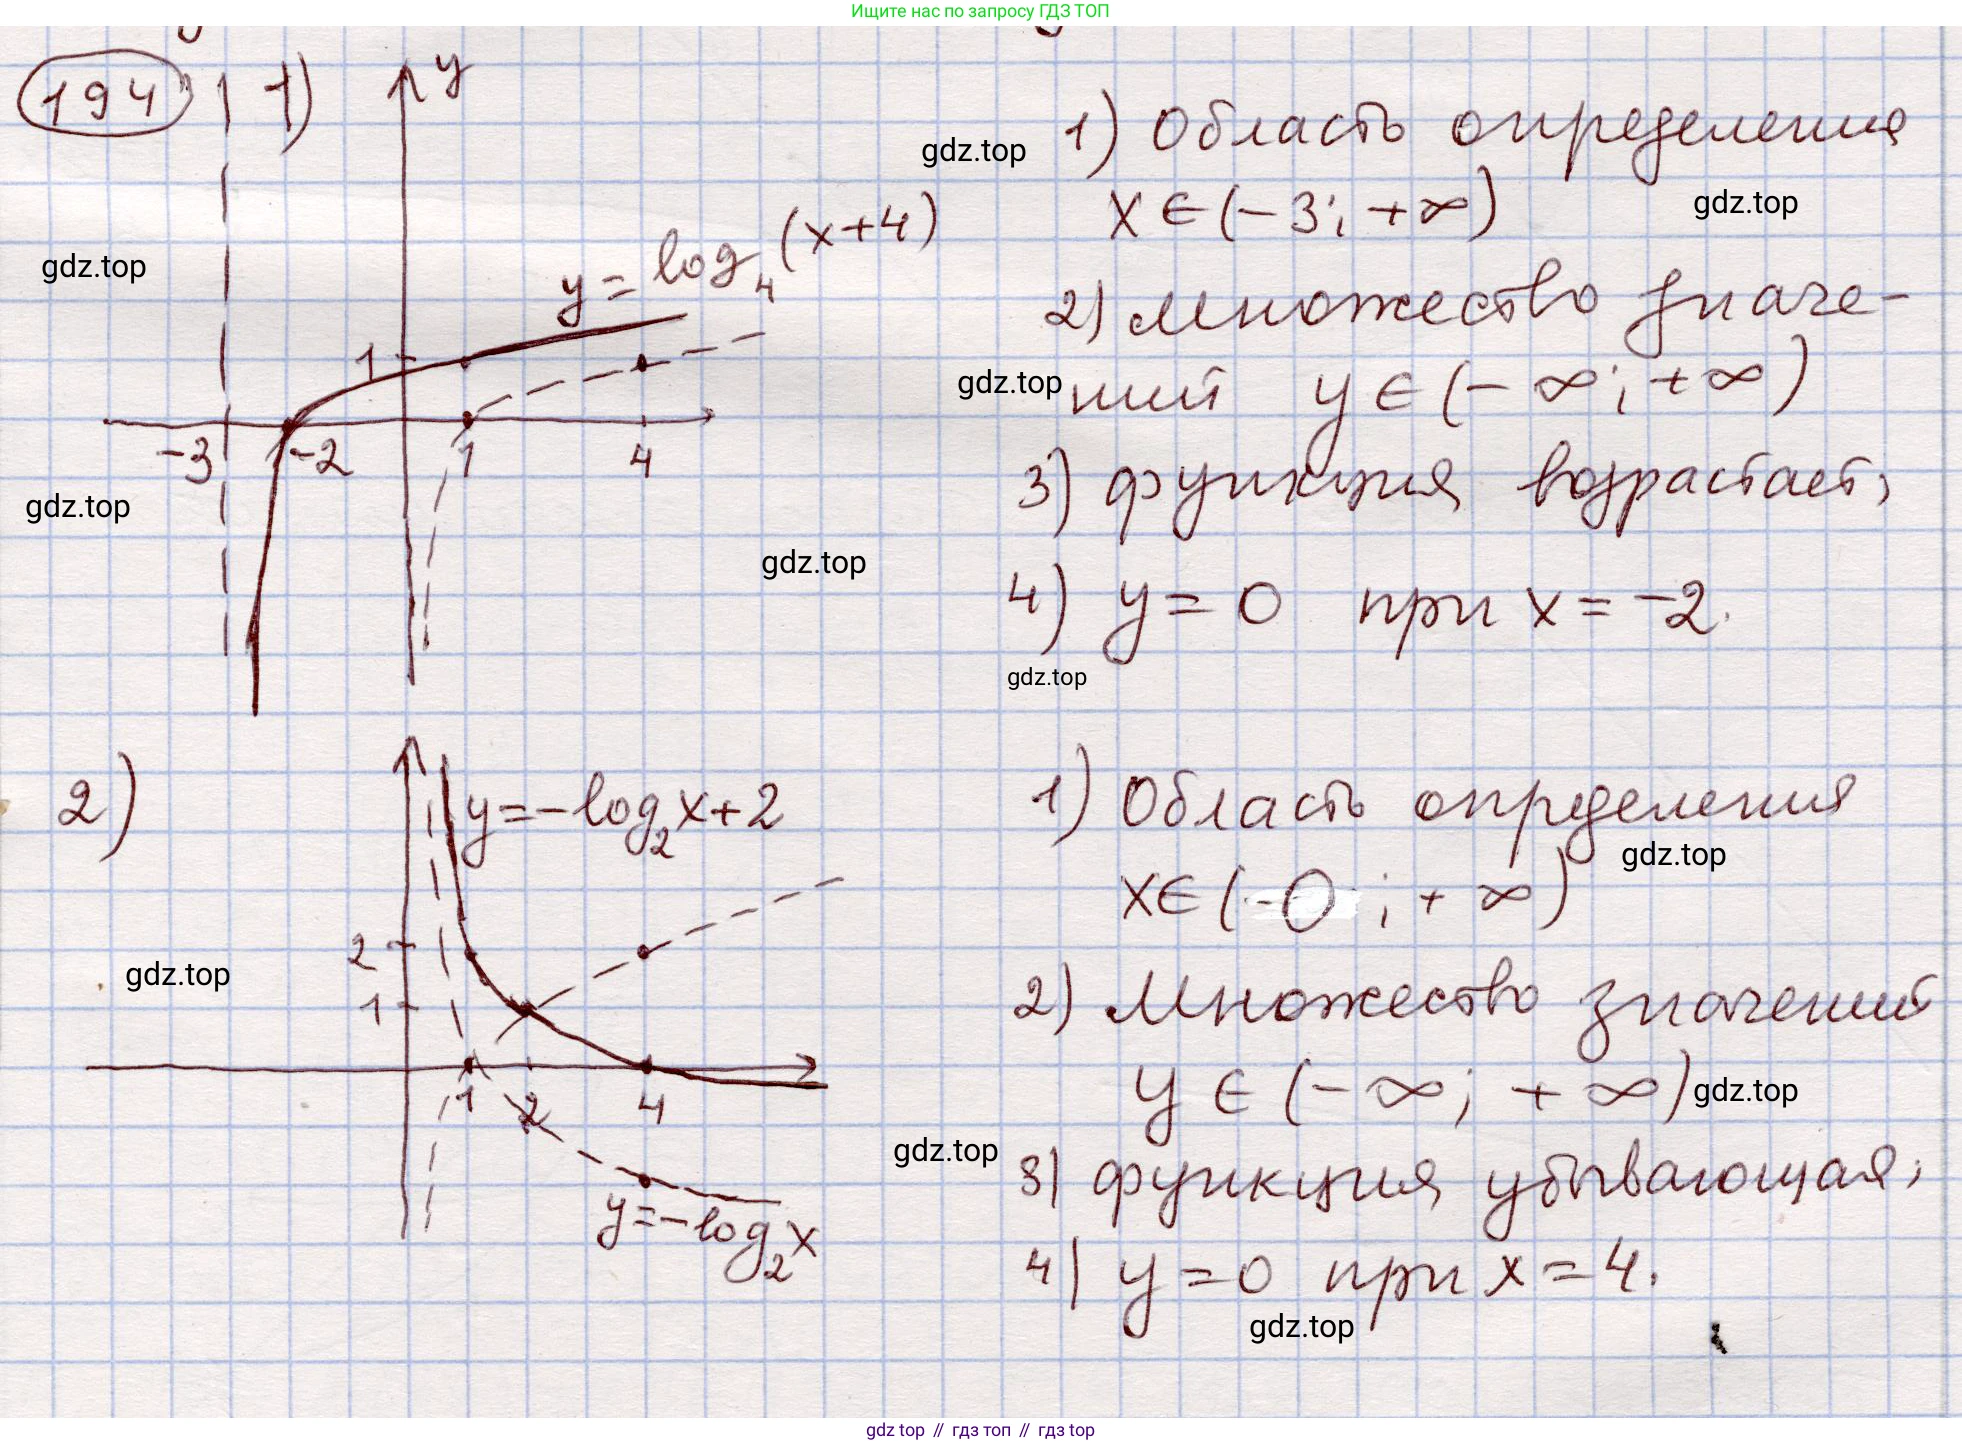 Ищите нас по запросу ГДЗ ТОП
194 1) y
1) Область определения
x ∈ (-3; +∞)
y = log₄(x+4)
2) множество значе-
ний y ∈ (-∞; +∞)
1
-3 -2 1 4
3) функция возрастает,
4) y = 0 при x = -2.
gdz.top
gdz.top
gdz.top
gdz.top
gdz.top
gdz.top
gdz.top
2) y=-log₂x+2
1) Область определения
x ∈ (-0; +∞)
2
1
2) Множество значений
y ∈ (-∞; +∞)
1 2 4
3) функция убывающая,
y=-log₂x
4) y=0 при x=4.
gdz.top
gdz.top
gdz.top
gdz.top
gdz.top
gdz top // гдз топ // гдз top